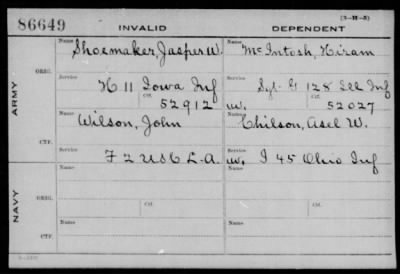 86649 INVALID DEPENDENT (3-H-5)
Name Name
Shoemaker, Jasper W. McIntosh, Hiram
ORIG. Service Service
H 11 Iowa Inf Sgt. G 128 Ill Inf
Ctf. 52912 W. Ctf. 52027
ARMY
Name Name
Wilson, John Chilson, Asel W.
CTF. Service Service
F 2 US C L. A. W. I 45 Ohio Inf
NAVY
Name Name
ORIG. Service Ctf. Service Ctf.
Name Name
CTF. Service Service